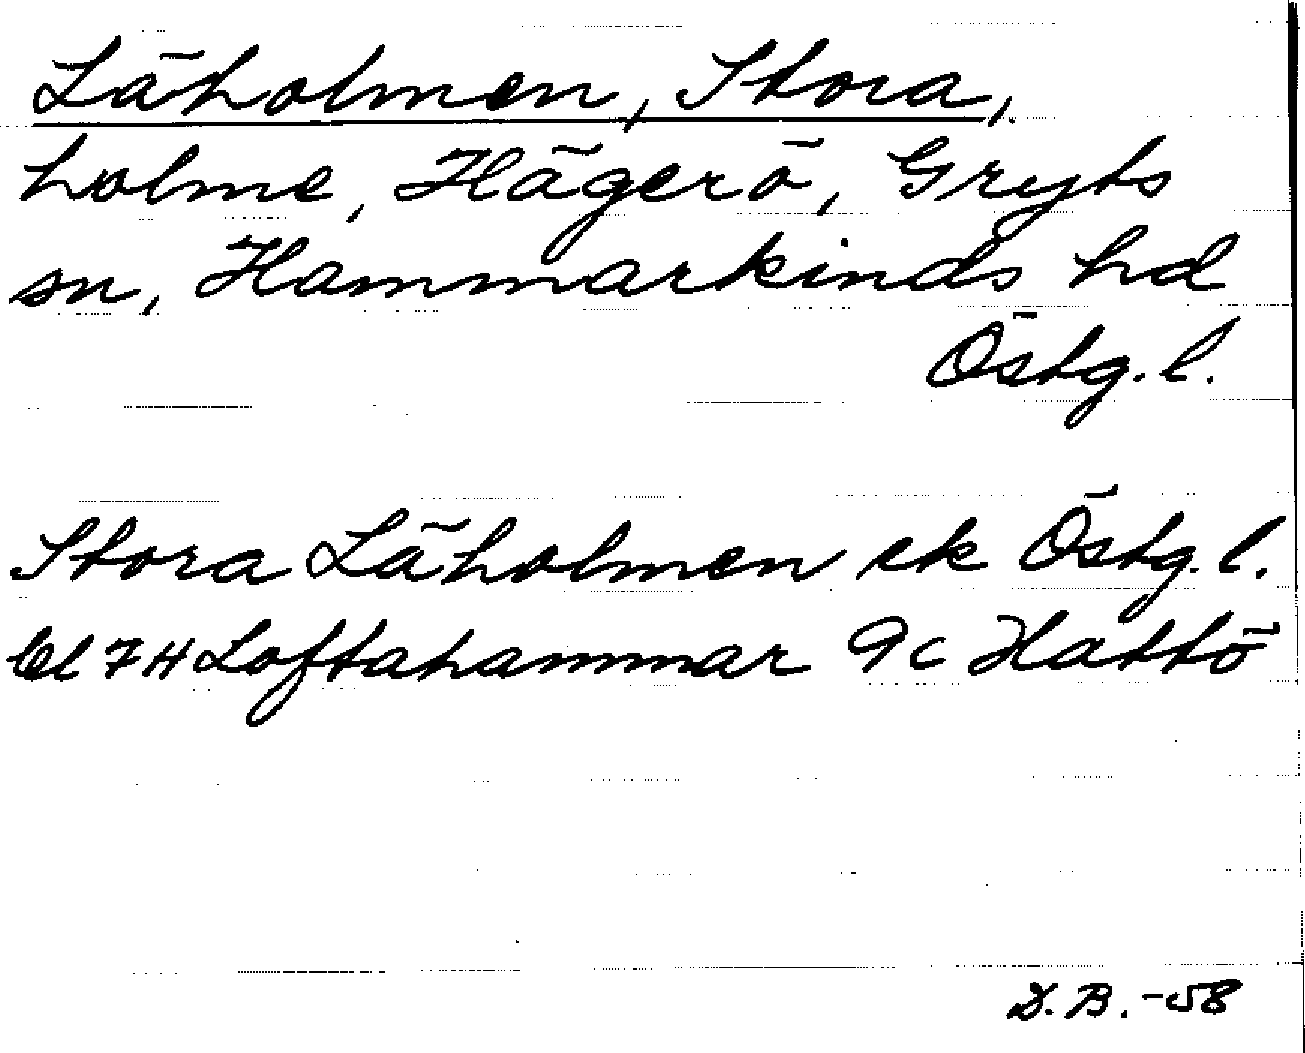 Läholmen, Stora,
holme, Hägerö, Gryts
sn, Hammarkinds hd
Östg. l.
Stora Läholmen ek Östg. l.
bl 7H Loftahammar 9c Hattö
D.B. -58